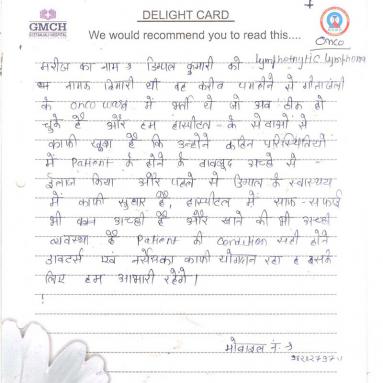 GMCH
DELIGHT CARD
We would recommend you to read this....
Onco
मरीज का नाम → डिम्पल कुमारी को lymphoma
नामक बिमारी थी वह करीब गीतांजली
के onco ward में भर्ती थे जो अब ठीक हो
चुके है और हम हॉस्पीटल के सेवाओ से
काफी खुश है कि उन्होने कठिन परिस्थितियो
में Patient के होने के बावजूद अच्छे से
ईलाज किया और पहले से डिम्पल के स्वास्थ्य
में काफी सुधार है, हास्पीटल में साफ-सफाई
भी अच्छी है और खाने की भी अच्छी
व्यवस्था है Patient की condition सही होने
डाक्टर्स एवं काफी योगदान रहा है इसके
लिए हम आभारी रहेगे।
मोबाइल नं →